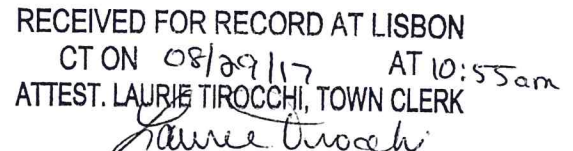 RECEIVED FOR RECORD AT LISBON
CT ON 08/29/17 AT 10:55am
ATTEST. LAURIE TIROCCHI, TOWN CLERK
Laurie Tirocchi